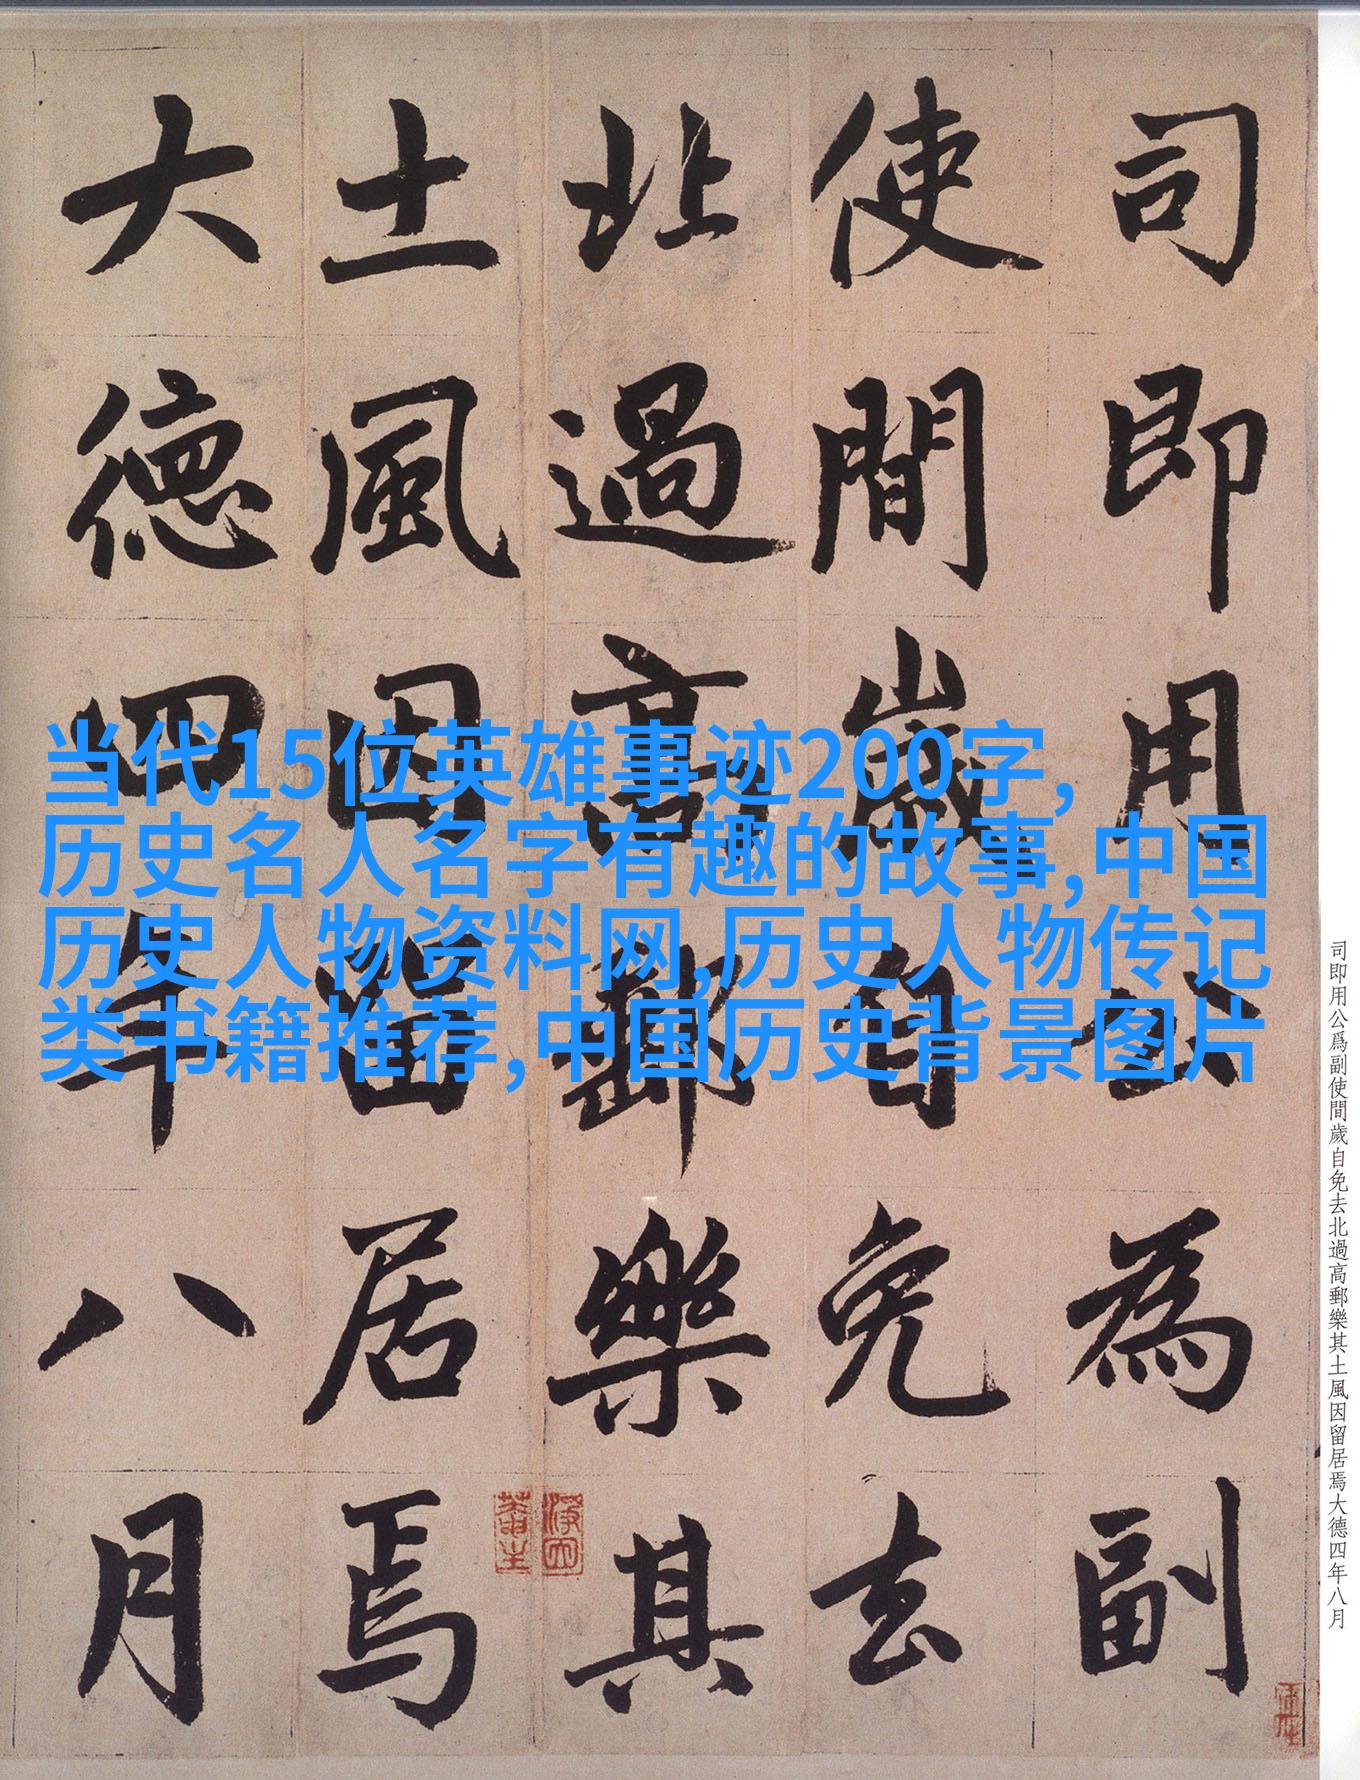 司即用公為副
使間歲自免去
北過高郵樂其
土風因留居焉
大德四年八月
当代15位英雄事迹200字,
历史名人名字有趣的故事,中国
历史人物资料网,历史人物传记
类书籍推荐,中国历史背景图片
司即用公爲副使間歲自免去北過高郵樂其土風因留居焉大德四年八月